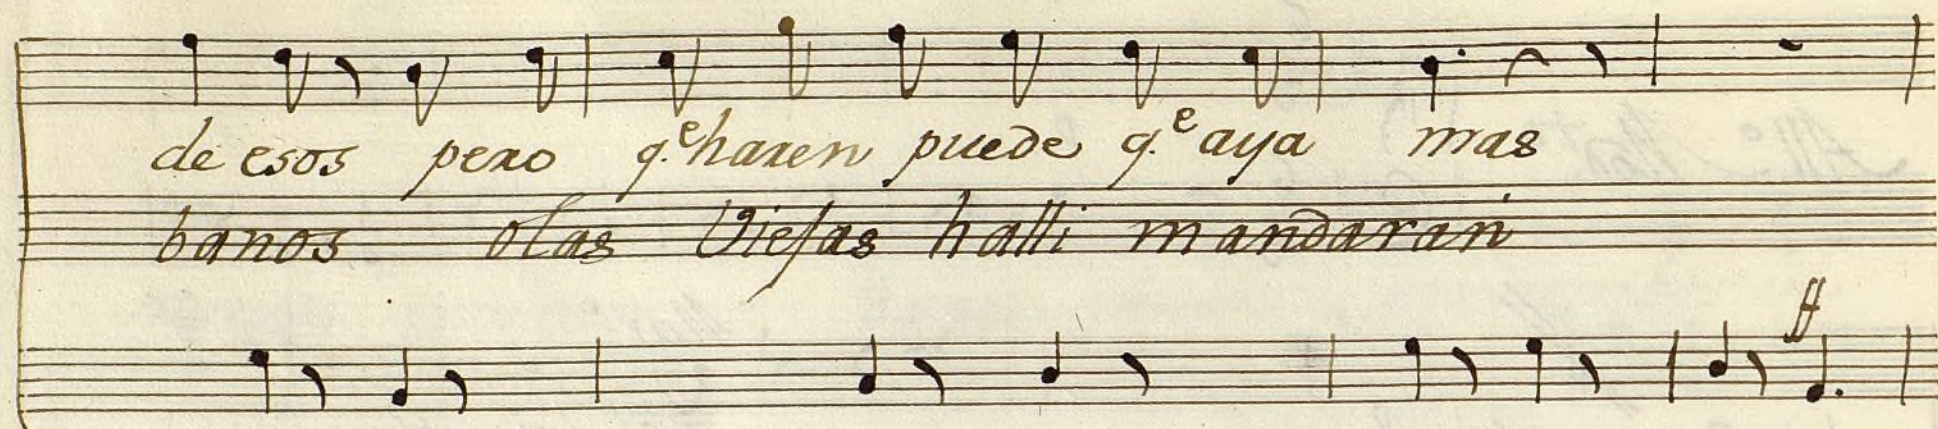 de esos pero q.ᵉ haren puede q.ᵉ aya mas
banos olas Viejas halli mandaran
ff